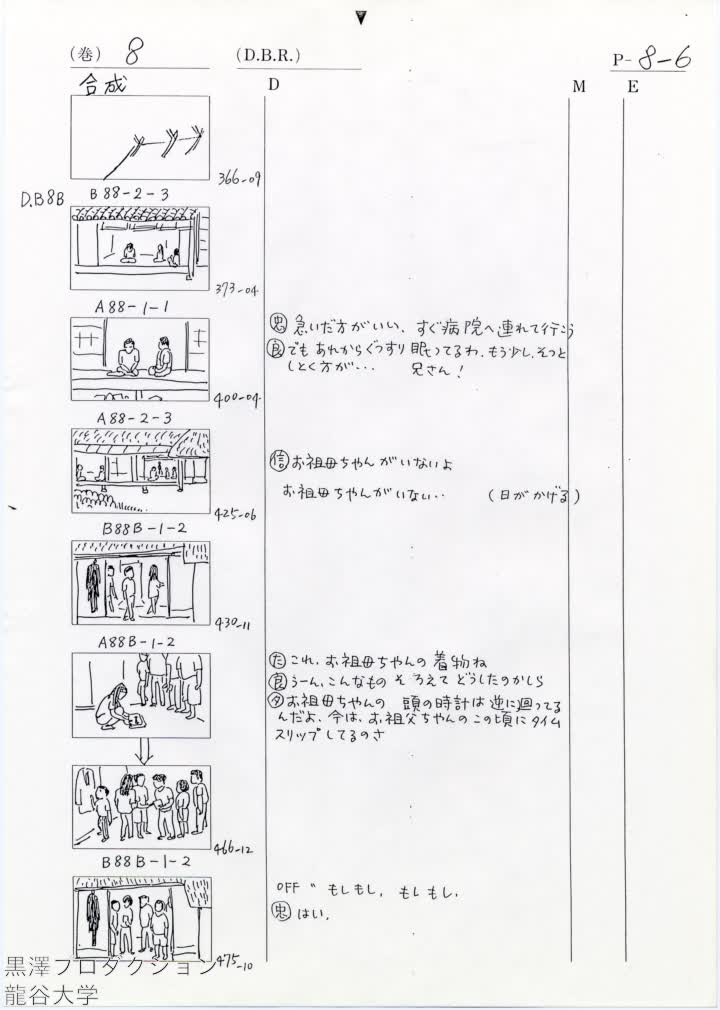 (巻) 8 (D.B.R.) P-8-6
合成 D M E
366-09
D.B8B B88-2-3
373-04
A88-1-1
忠 急いだ方がいい、すぐ病院へ連れて行こう
良 でもあれからぐっすり眠ってるわ、もう少し、そっと
しとく方が… 兄さん!
400-04
A88-2-3
信 お祖母ちゃんがいないよ
お祖母ちゃんがいない‥ (日がかげる)
425-06
B88B-1-2
430-11
A88B-1-2
た これ、お祖母ちゃんの着物ね
良 うーん、こんなものそろえてどうしたのかしら
タ お祖母ちゃんの 頭の時計は逆に廻ってる
んだよ、今は、お祖父ちゃんのこの頃にタイム
スリップしてるのさ
466-12
B88B-1-2
OFF〃 もしもし, もしもし,
忠 はい,
475-10
黒澤プロダクション
龍谷大学